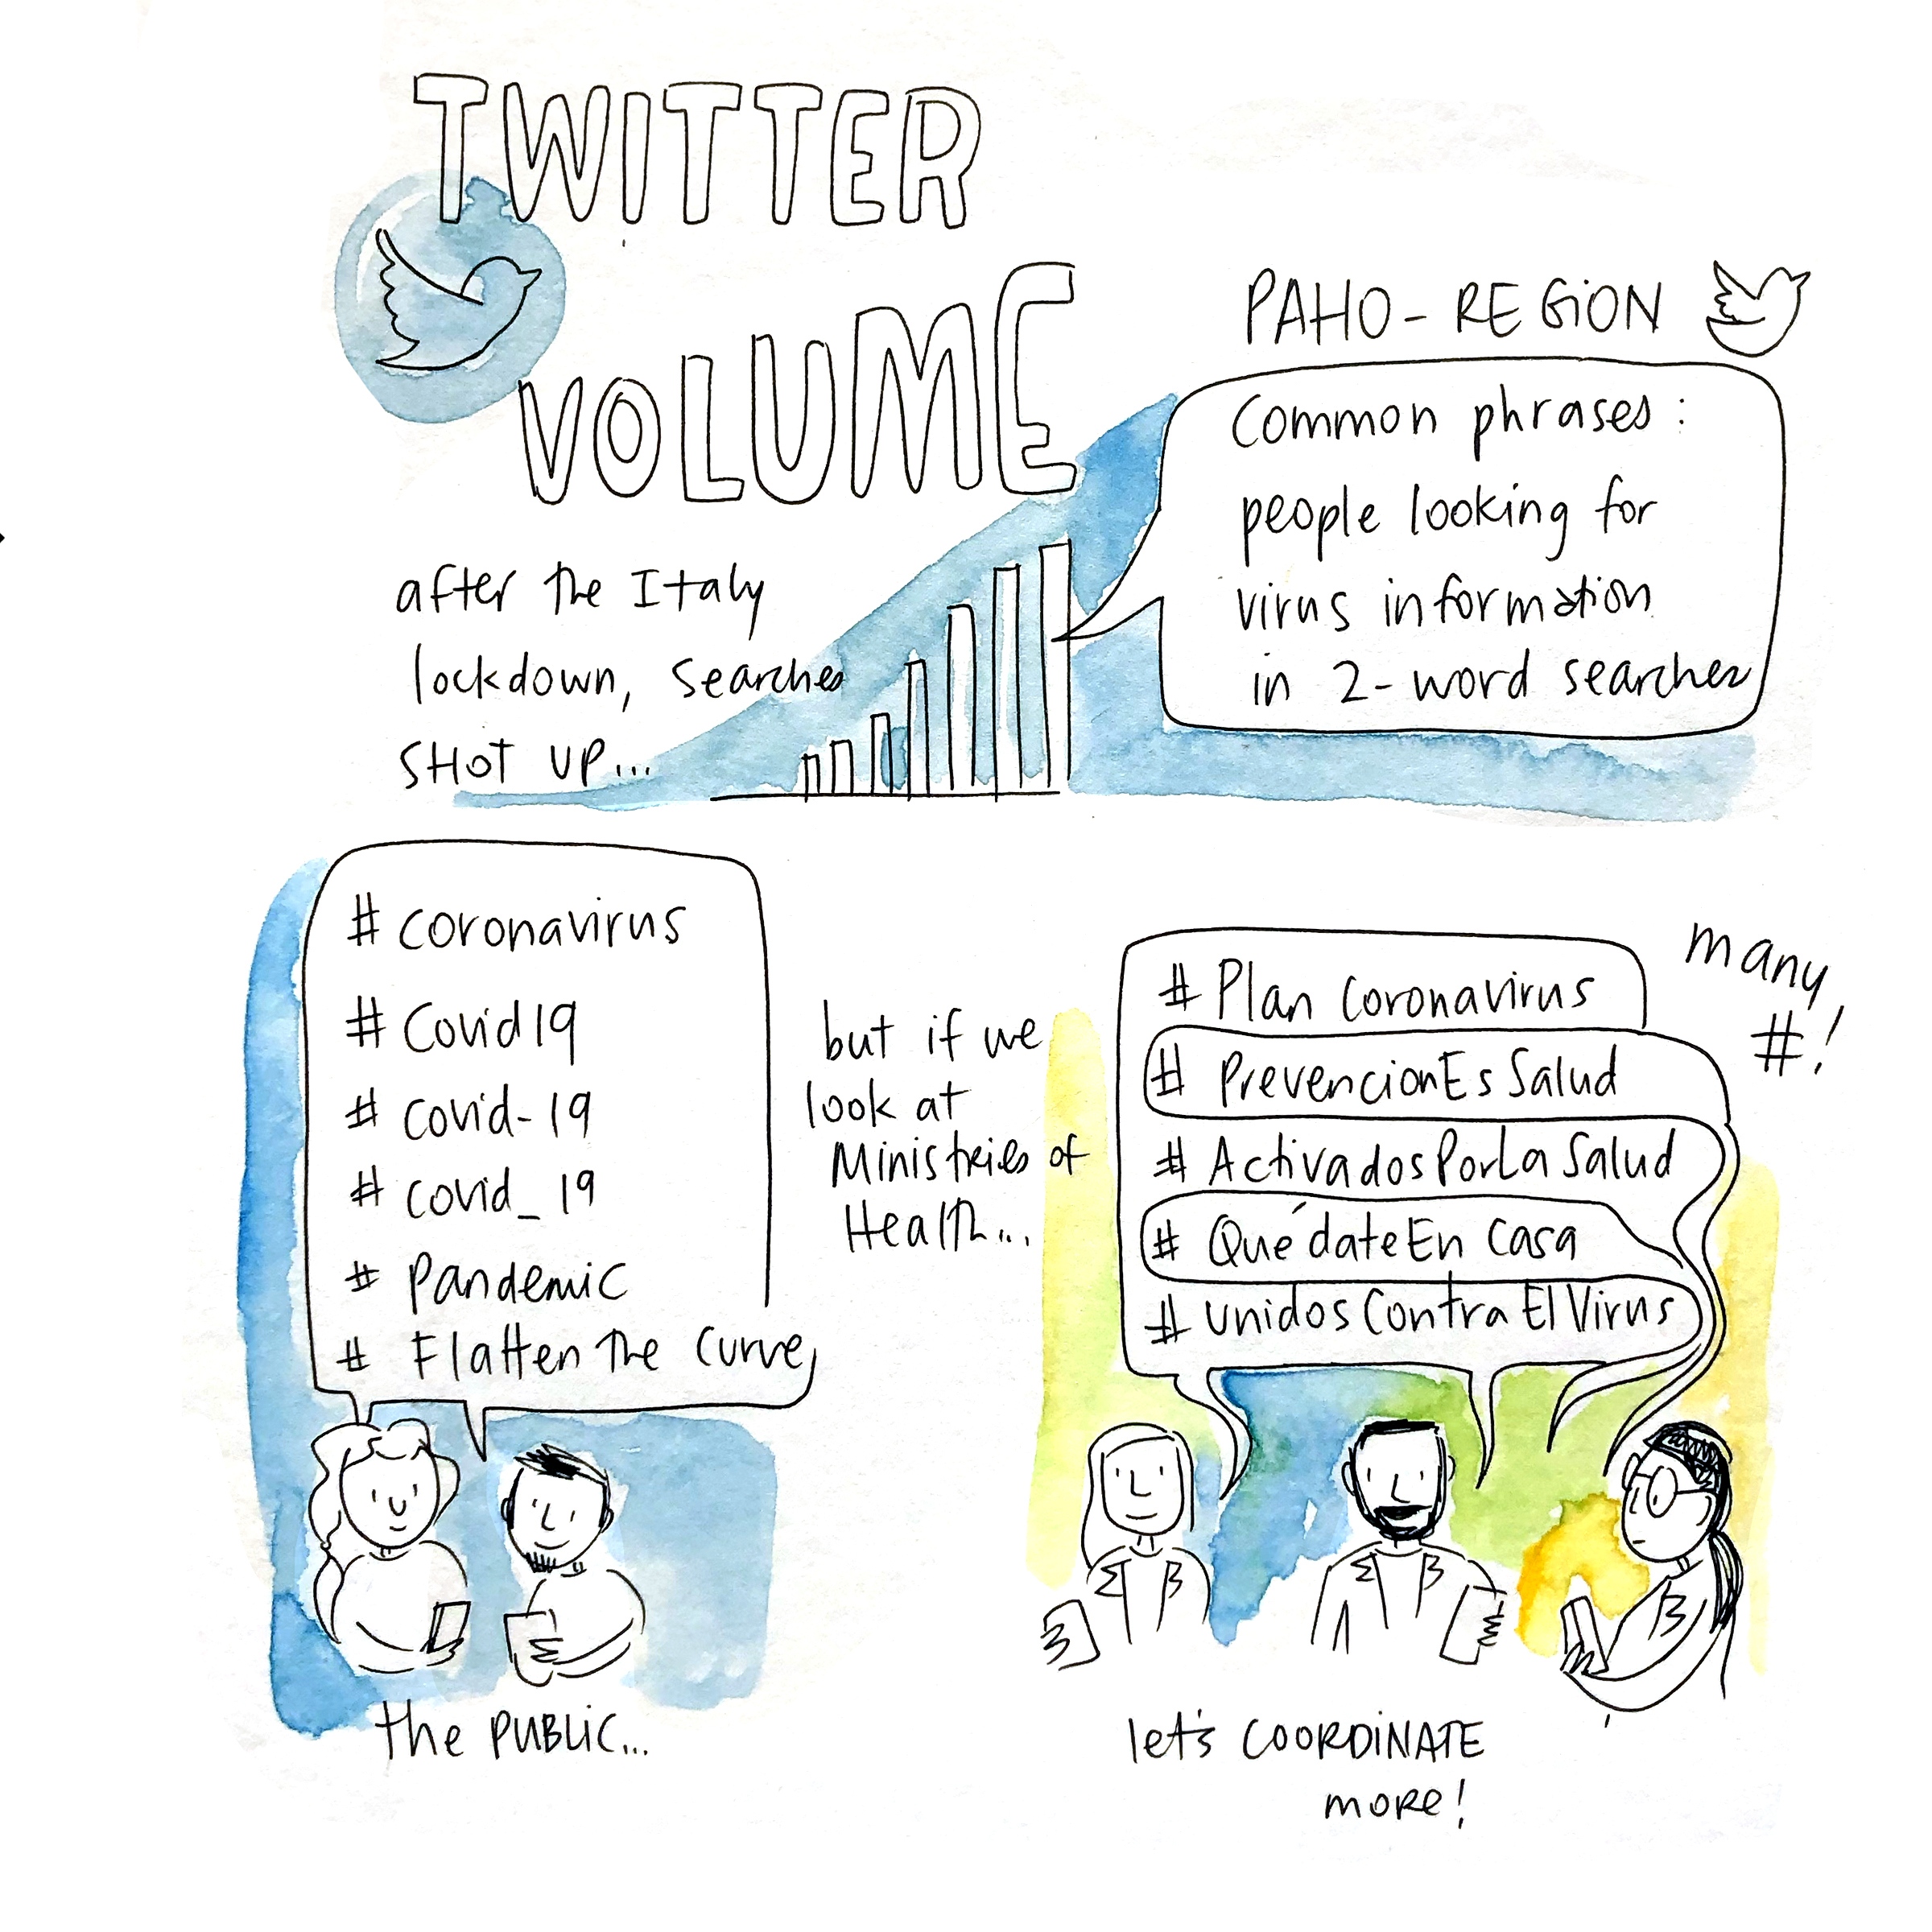 TWITTER
VOLUME
after the Italy
lockdown, searches
SHOT UP...
PAHO - REGiON
Common phrases :
people looking for
virus information
in 2-word searches
# coronavirus
# Covid19
# covid-19
# covid_19
# Pandemic
# Flatten The Curve
the PUBLiC...
but if we
look at
Ministries of
Health...
# Plan Coronavirus
# PrevencionEs Salud
# ActivadosPorLa Salud
# QuédateEn Casa
# unidos Contra El Virus
many
#!
let's COORDiNATE
more!